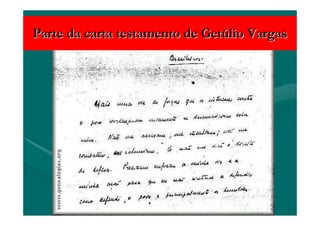 Parte da carta testamento de Getúlio Vargas
Brasileiros.
Mais uma vez as forças que os interesses contra
o povo coordenaram novamente se desencadeiam sobre
mim. Não me acusam, me insultam; não me
combatem, me caluniam. E não me dão o direito
de defesa. Precisam sufocar a minha voz e a
minha ação para que eu não continue a defender
como defendi, o povo e principalmente os humildes.
www.genealogias.org